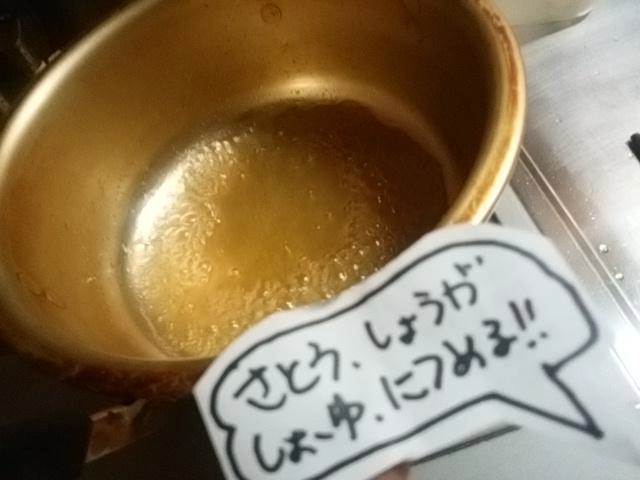 さとう、しょうが
しょーゆ、につめる!!